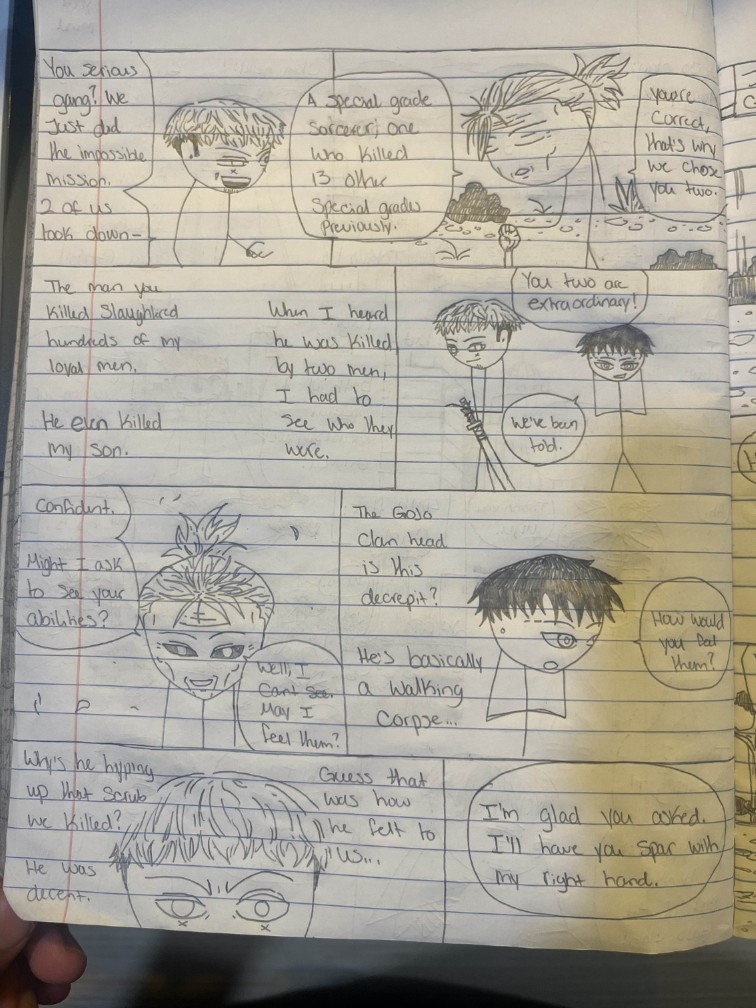 You serious
gang? We
Just did
the impossible
mission.
2 of us
took down-
A special grade
Sorcerer; one
who killed
13 other
Special grades
previously.
You're
Correct,
that's why
we chose
you two.
The man you
Killed Slaughtered
hundreds of my
loyal men.
He even killed
my son.
When I heard
he was killed
by two men,
I had to
see who they
were.
You two are
extraordinary!
We've been
told.
Confident.
Might I ask
to see your
abilities?
Well, I
Can't see.
May I
feel them?
The Gojo
Clan head
is this
decrepit?
He's basically
a walking
corpse...
How would
you feel
them?
Why's he hyping
up that Scrub
we killed?
He was
decent.
Guess that
was how
he felt to
us...
I'm glad you asked.
I'll have you Spar with
my right hand.